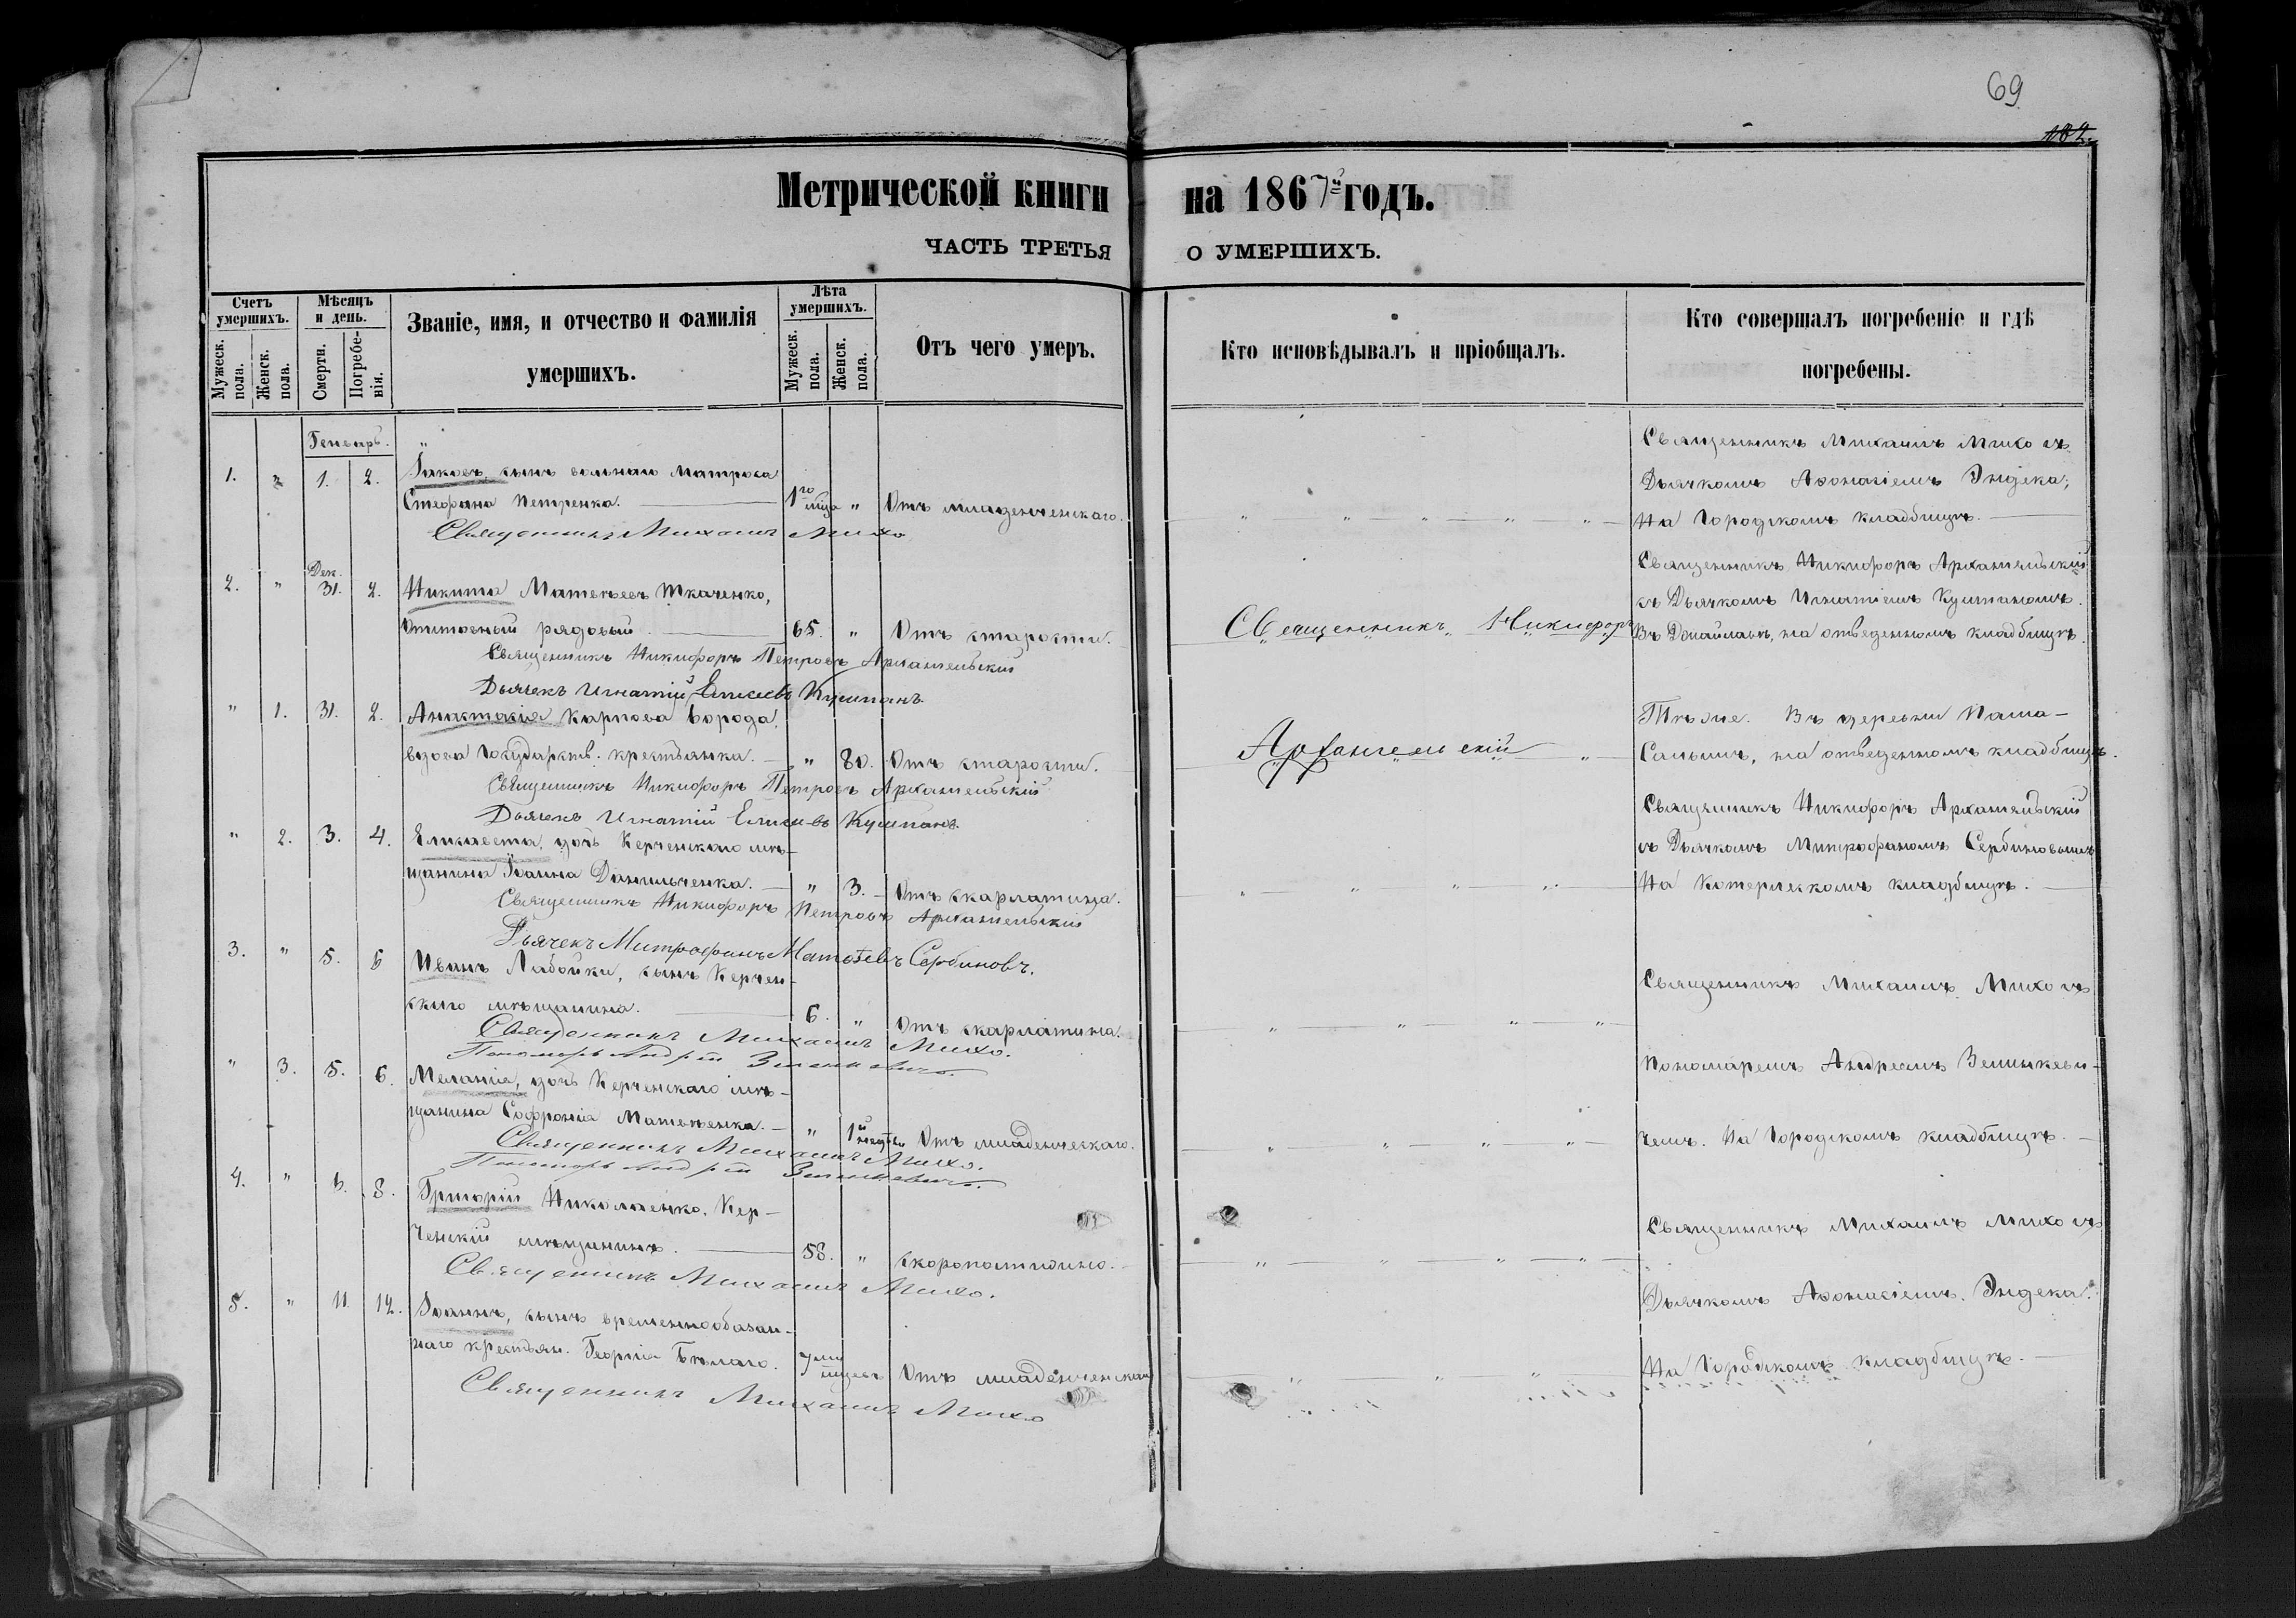 69
182.
Метрической книги на 1867й годъ.
ЧАСТЬ ТРЕТЬЯ О УМЕРШИХЪ.
Счетъ умершихъ.
Мужеск. пола.
Женск. пола.
Мѣсяцъ и день.
Смерти.
Погребенія.
Званіе, имя, и отчество и фамилія
умершихъ.
Лѣта умершихъ.
Мужеск. пола.
Женск. пола.
Отъ чего умеръ.
Кто исповѣдывалъ и пріобщалъ.
Кто совершалъ погребеніе и гдѣ
погребены.
Генварь.
1. " 1. 2. Іаковъ, сынъ вольнаго матроса
Стефана Петренка. 1го мѣсца " Отъ младенческаго.
Священникъ Михаилъ Михо
Священникъ Михаилъ Михо съ
Дьячкомъ Афонасіемъ Индека;
На Городскомъ кладбищѣ.
Дек.
2. " 31. 2. Никита Матвѣевъ Ткаченко,
Отставный рядовый. 65. " Отъ старости.
Священникъ Никифоръ Петровъ Архангельскій
Дьячекъ Игнатій Елисеевъ Кушпанъ.
Священникъ Никифоръ
Священникъ Никифоръ Архангельскій
съ Дьячкомъ Игнатіемъ Кушпаномъ.
на отведенномъ кладбищѣ.
" 1. 31. 2. Анастасія Карпова Борода,
вдова Государств. крестьянка. " 80. Отъ старости.
Священникъ Никифоръ Петровъ Архангельскій
Дьячекъ Игнатій Елисеевъ Кушпанъ.
Архангельскій
Тѣ же. Въ деревни Паша-
Салынъ, на отведенномъ кладбищѣ.
" 2. 3. 4. Елисавета, дочь Керченскаго мѣ-
щанина Іоанна Данильченка. " 3. Отъ скарлатина.
Священникъ Никифоръ Петровъ Архангельскій
Дьячекъ Митрофанъ Матвѣевъ Сербиновъ.
Священникъ Никифоръ Архангельскій
съ Дьячкомъ Митрофаномъ Сербиновымъ
На Катерлезкомъ кладбищѣ.
3. " 5. 6 Иванъ Лабойка, сынъ Керчен-
скаго мѣщанина. 6. " Отъ скарлатина.
Священникъ Михаилъ Михо.
Пономарь Андрей Зелинкевичъ.
Священникъ Михаилъ Михо съ
" 3. 5. 6. Меланія, дочь Керченскаго мѣ-
щанина Софронія Матвѣенка. " 1й недѣли Отъ младенческаго.
Священникъ Михаилъ Михо.
Пономарь Андрей Зелинкевичъ.
Пономаремъ Андреемъ Зелинкеви-
чемъ. На Городскомъ кладбищѣ.
4. " 6. 8. Григорій Николаенко. Кер-
ченскій мѣщанинъ. 58. " скоропостижно.
Священникъ Михаилъ Михо.
Священникъ Михаилъ Михо съ
Дьячкомъ Афонасіемъ Индека.
5. " 11. 12. Іоаннъ, сынъ временнообязан-
наго крестьян. Георгія Бѣлаго. 7ми мѣсцевъ Отъ младенческаго
Священникъ Михаилъ Михо
На Городскомъ кладбищѣ.